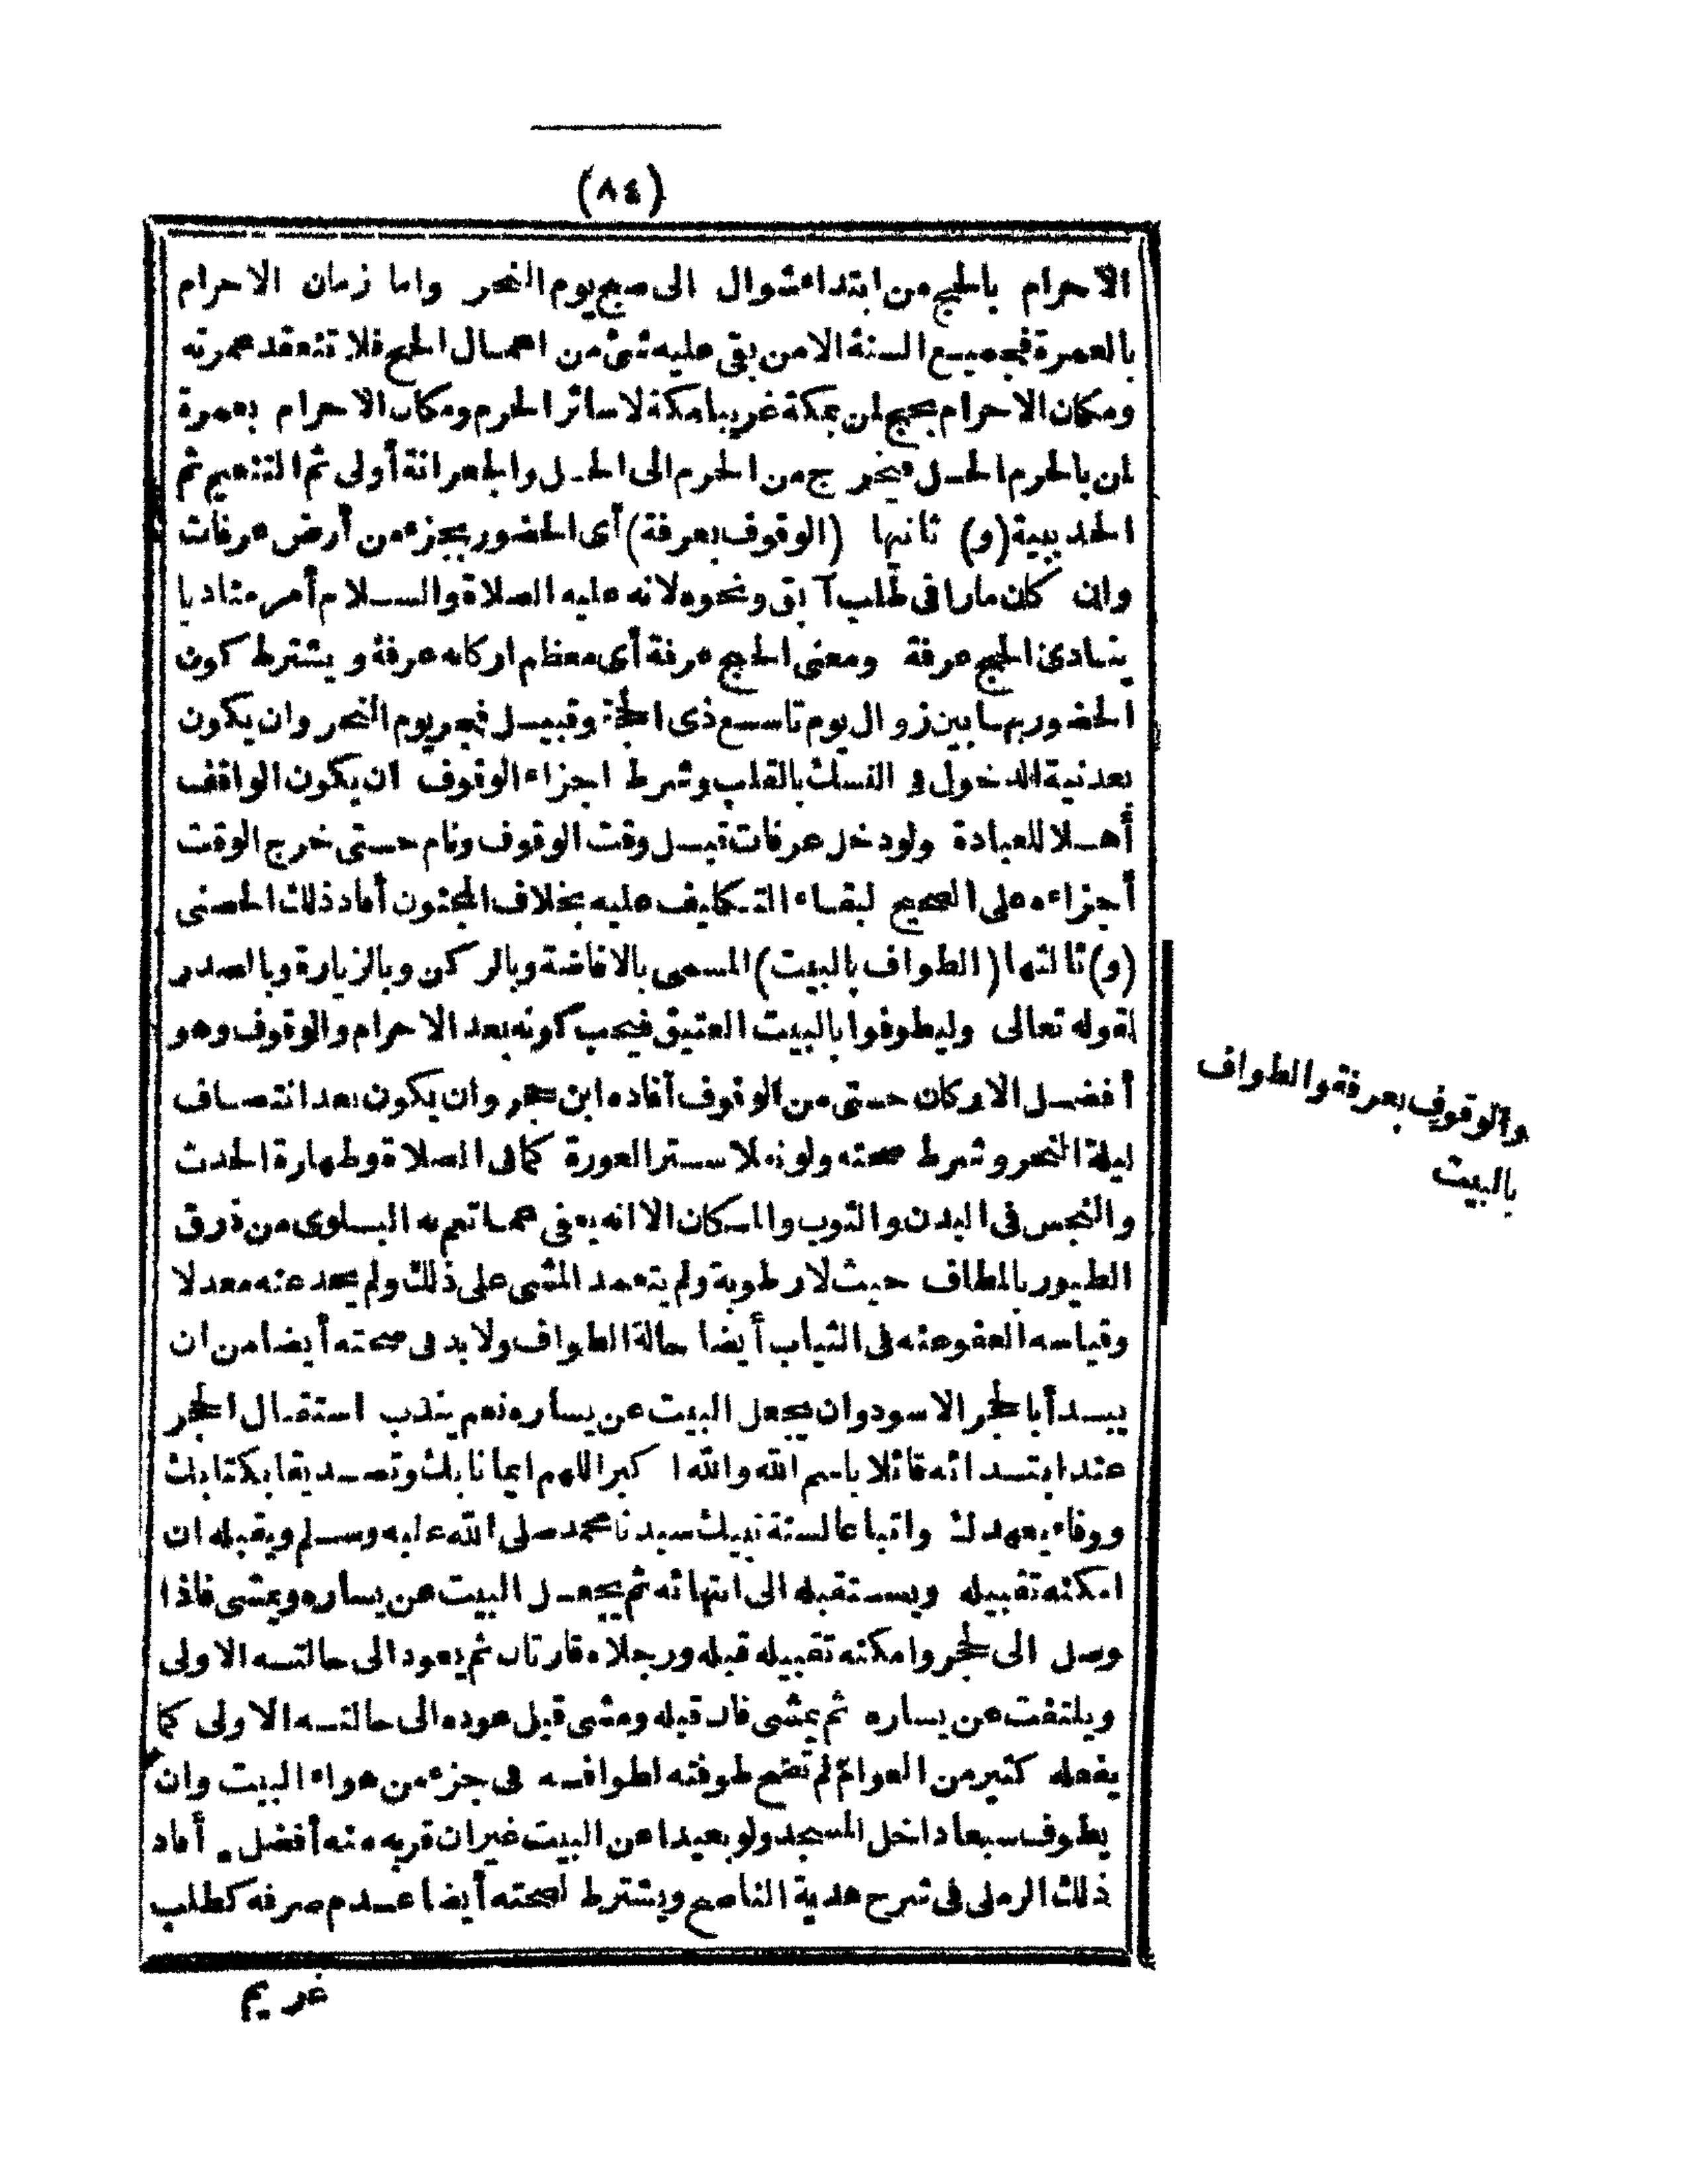 (٨٤)
الاحرام بالحج من ابتداء شوال الى صبح يوم النحر واما زمان الاحرام
بالعمرة فجميع السنة الا من بقى عليه شئ من اعمال الحج فلا تنعقد عمرته
ومكان الاحرام بحج لمن بمكة غريبا مكة لا سائر الحرم ومكان الاحرام بعمرة
لمن بالحرم الحل فيخرج من الحرم الى الحل والجعرانة أولى ثم التنعيم ثم
الحديبية (و) ثانيها (الوقوف بعرفة) أى الحضور بجزء من أرض عرفات
وان كان مارا فى طلب آبق ونحوه لانه عليه الصلاة والسلام أمر مناديا
ينادى الحج عرفة ومعنى الحج عرفة أى معظم اركانه عرفة ويشترط كون
الحضور بها بين زوال يوم تاسع ذى الحجة وقبيل فجر يوم النحر وان يكون
بعد نية الدخول فى النسك بالقلب وشرط اجزاء الوقوف ان يكون الواقف
أهلا للعبادة ولو دخل عرفات قبل وقت الوقوف ونام حتى خرج الوقت
أجزاءه على الصحيح لبقاء التكليف عليه بخلاف المجنون أفاد ذلك الحصنى
(و) ثالثها (الطواف بالبيت) المسمى بالافاضة وبالركن وبالزيارة وبالصدر
لقوله تعالى وليطوفوا بالبيت العتيق فيجب كونه بعد الاحرام والوقوف وهو
أفضل الاركان حتى من الوقوف آفاده ابن حجر وان يكون بعد انتصاف
ليلة النحر وشرط صحته ولو نفلا ستر العورة كما فى الصلاة وطهارة الحدث
والنجس فى البدن والثوب والمكان الا انه يعفى عما تعم به البلوى من ذرق
الطيور بالمطاف حيث لا رطوبة ولم يتعمد المشى على ذلك ولم يجد عنه معدلا
وقياسه العفو عنه فى الثياب أيضا حالة الطواف ولا بد فى صحته أيضا من ان
يبدأ بالحجر الاسود وان يجعل البيت عن يساره نعم يندب استقبال الحجر
عند ابتدائه قائلا باسم الله والله اكبر اللهم ايمانا بك وتصديقا بكتابك
ووفاء بعهدك واتباعا لسنة نبيك سيدنا محمد صلى الله عليه وسلم ويقبله ان
امكنه تقبيله ويستقبله الى انتهائه ثم يجعل البيت عن يساره ويمشى فاذا
وصل الى الحجر وامكنه تقبيله قبله ورجلاه قارتان ثم يعود الى حالته الاولى
ويلتفت عن يساره ثم يمشى فان قبله ومشى قبل عوده الى حالته الاولى كما
يفعله كثير من العوام لم تصح طوفته لطوافه فى جزء من هواء البيت وان
يطوف سبعا داخل المسجد ولو بعيدا عن البيت غير ان قربه منه أفضل. أفاد
ذلك الرملى فى شرح هدية الناصح ويشترط لصحته أيضا عدم صرفه كطلب
غريم
والوقوف بعرفة والطواف
بالبيت